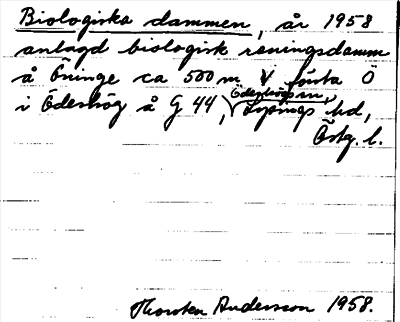 Biologiska dammen, år 1958
anlagd biologisk reningsdamm
å Öninge ca 500 m V första Ö
i Ödeshög å G 44, Ödeshögs sn,
Lysings hd,
Östg. l.
Thorsten Andersson 1958.